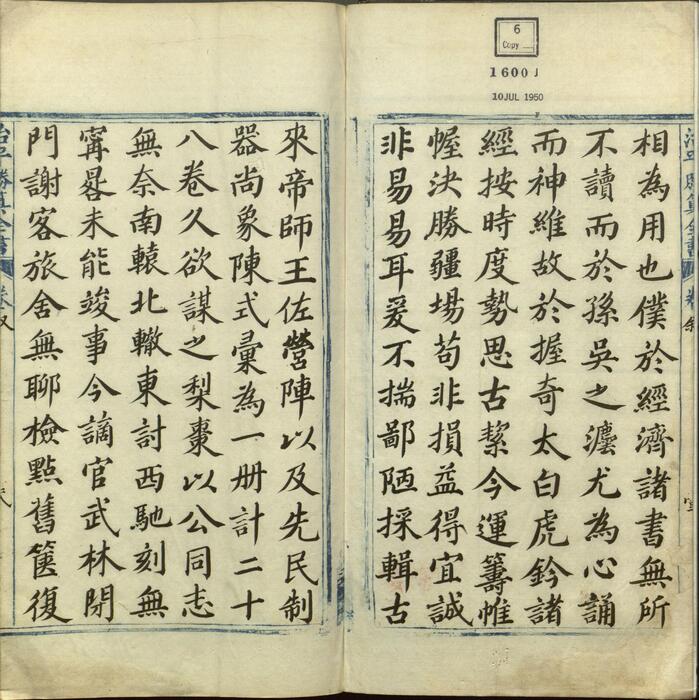 6
Copy
1600 J
10 JUL 1950
相為用也僕於經濟諸書無所
不讀而於孫吳之灋尤為心誦
而神維故於握奇太白虎鈐諸
經按時度勢思古絜今運籌帷
幄決勝疆場苟非損益得宜誠
非易易耳爰不揣鄙陋採輯古
來帝師王佐營陣以及先民制
器尚象陳式彙為一册計二十
八卷久欲謀之梨棗以公同志
無奈南轅北轍東討西馳刻無
寕晷未能竣事今謫官武林閉
門謝客旅舍無聊檢點舊篋復